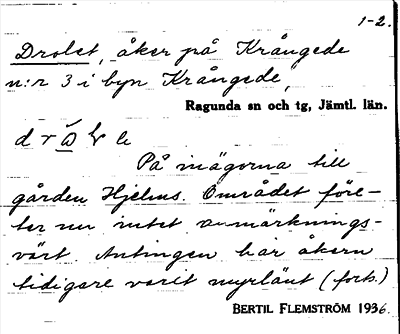 1-2.
Drolet, åker på Krångede
n:r 3 i byn Krångede,
Ragunda sn och tg, Jämtl. län.
På mägorna till
gården Hjelms. Området före-
ter nu intet anmärknings-
värt. Antingen har åkern
tidigare varit myrlänt (forts.)
BERTIL FLEMSTRÖM 1936.